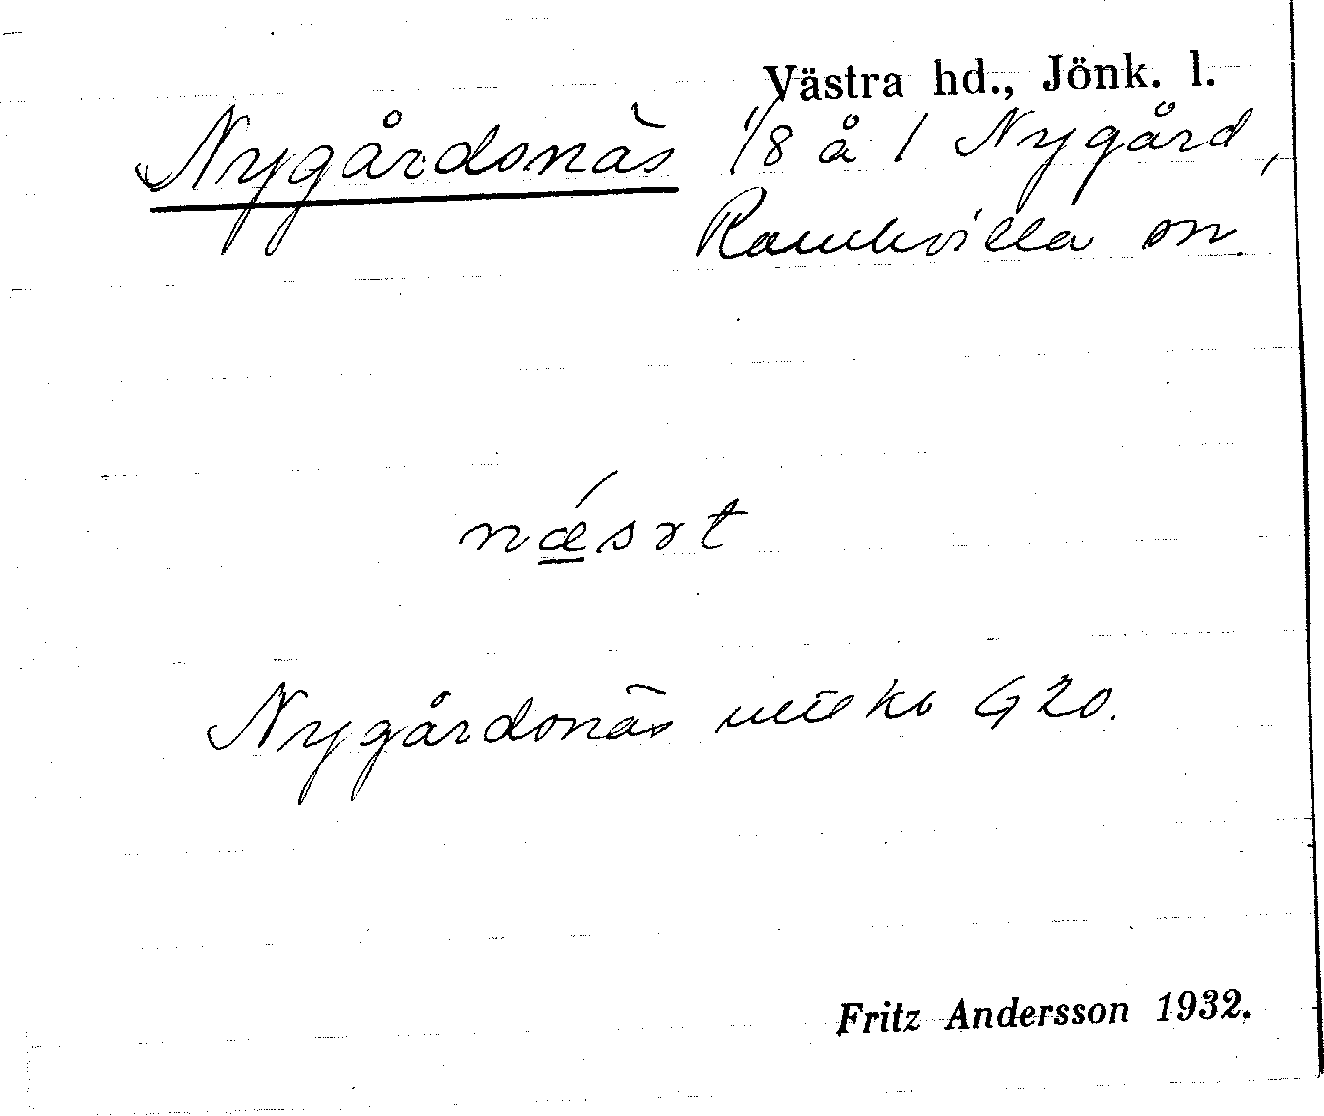 Västra hd., Jönk. l.
Nygårdsnäs 1/8 å 1 Nygård,
Ramkvilla sn.
nǽsɛt
Nygårdsnäs utsks G20.
Fritz Andersson 1932.